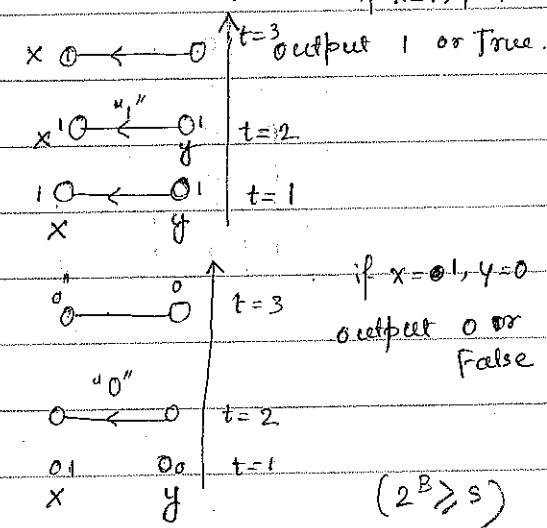 t=3
X 1 output 1 or True.
"1"
X 1 1 y t=2
1 1 t=1
X y
0" 0 t=3 if x=01, y=0
output 0 or False
"0"
t=2
01 00 t=1
X y (2^B ≥ s)